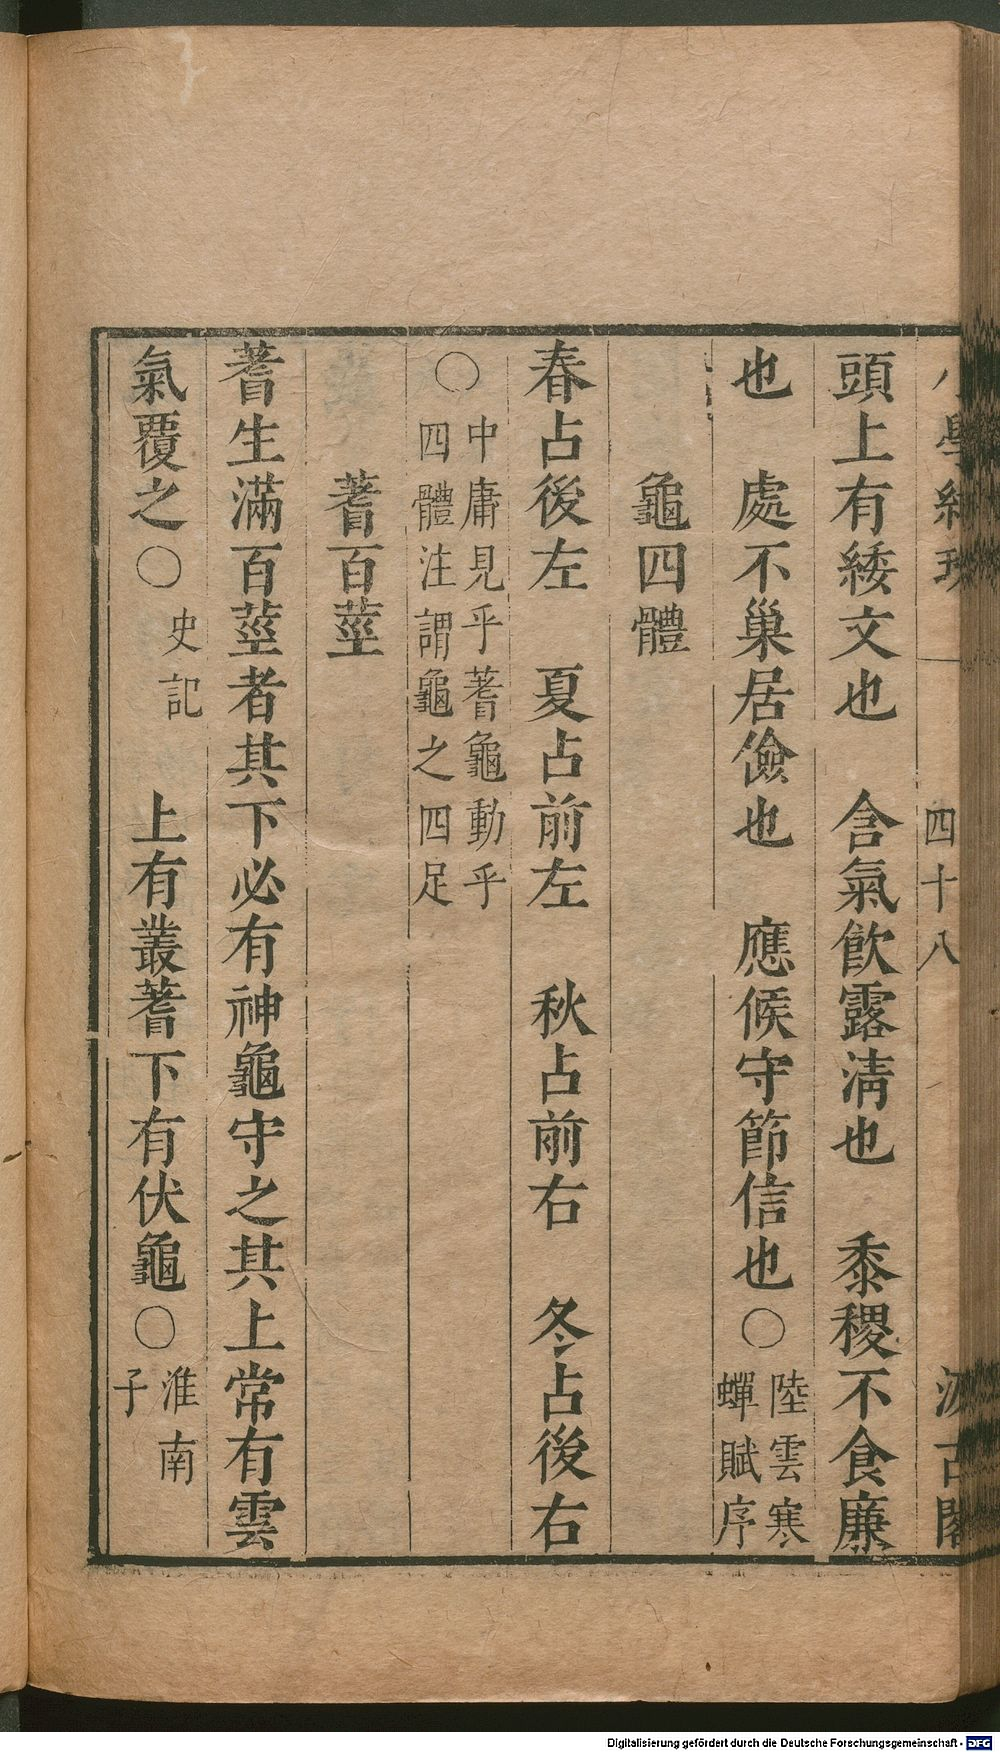 頭上有緌文也　含氣飲露清也　黍稷不食廉
也　處不巢居儉也　應候守節信也○陸雲寒
蟬賦序
龜四體
春占後左　夏占前左　秋占前右　冬占後右
○中庸見乎蓍龜動乎
四體注謂龜之四足
蓍百莖
蓍生滿百莖者其下必有神龜守之其上常有雲
氣覆之○史記　上有叢蓍下有伏龜○淮南
子
學紺珠
四十八
汲古閣
Digitalisierung gefördert durch die Deutsche Forschungsgemeinschaft - DFG